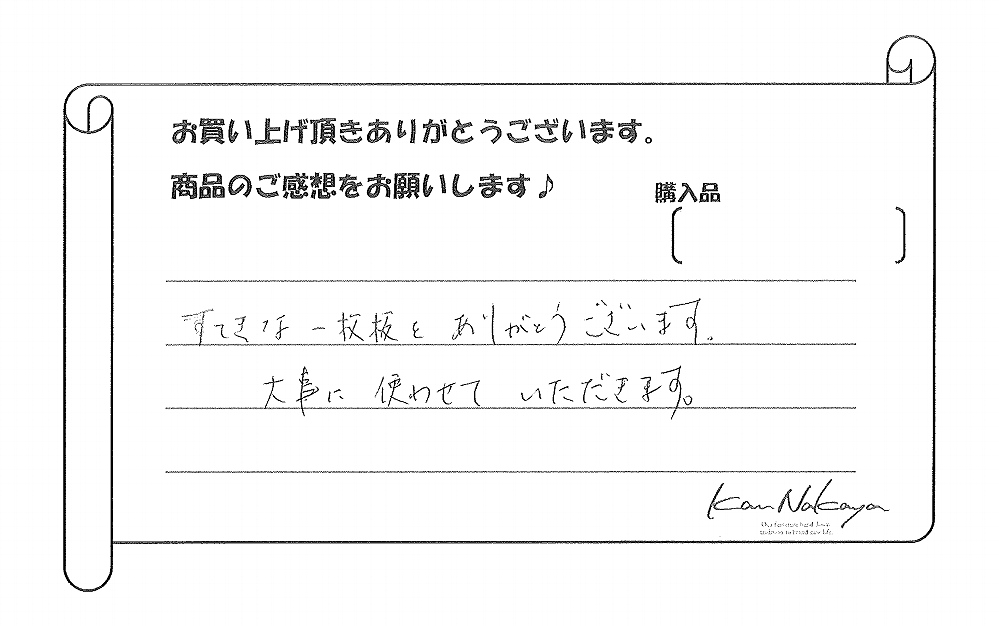 お買い上げ頂きありがとうございます。
商品のご感想をお願いします♪
購入品
すてきな一枚板を ありがとうございます。
大事に 使わせて いただきます。
Kan Nakaya